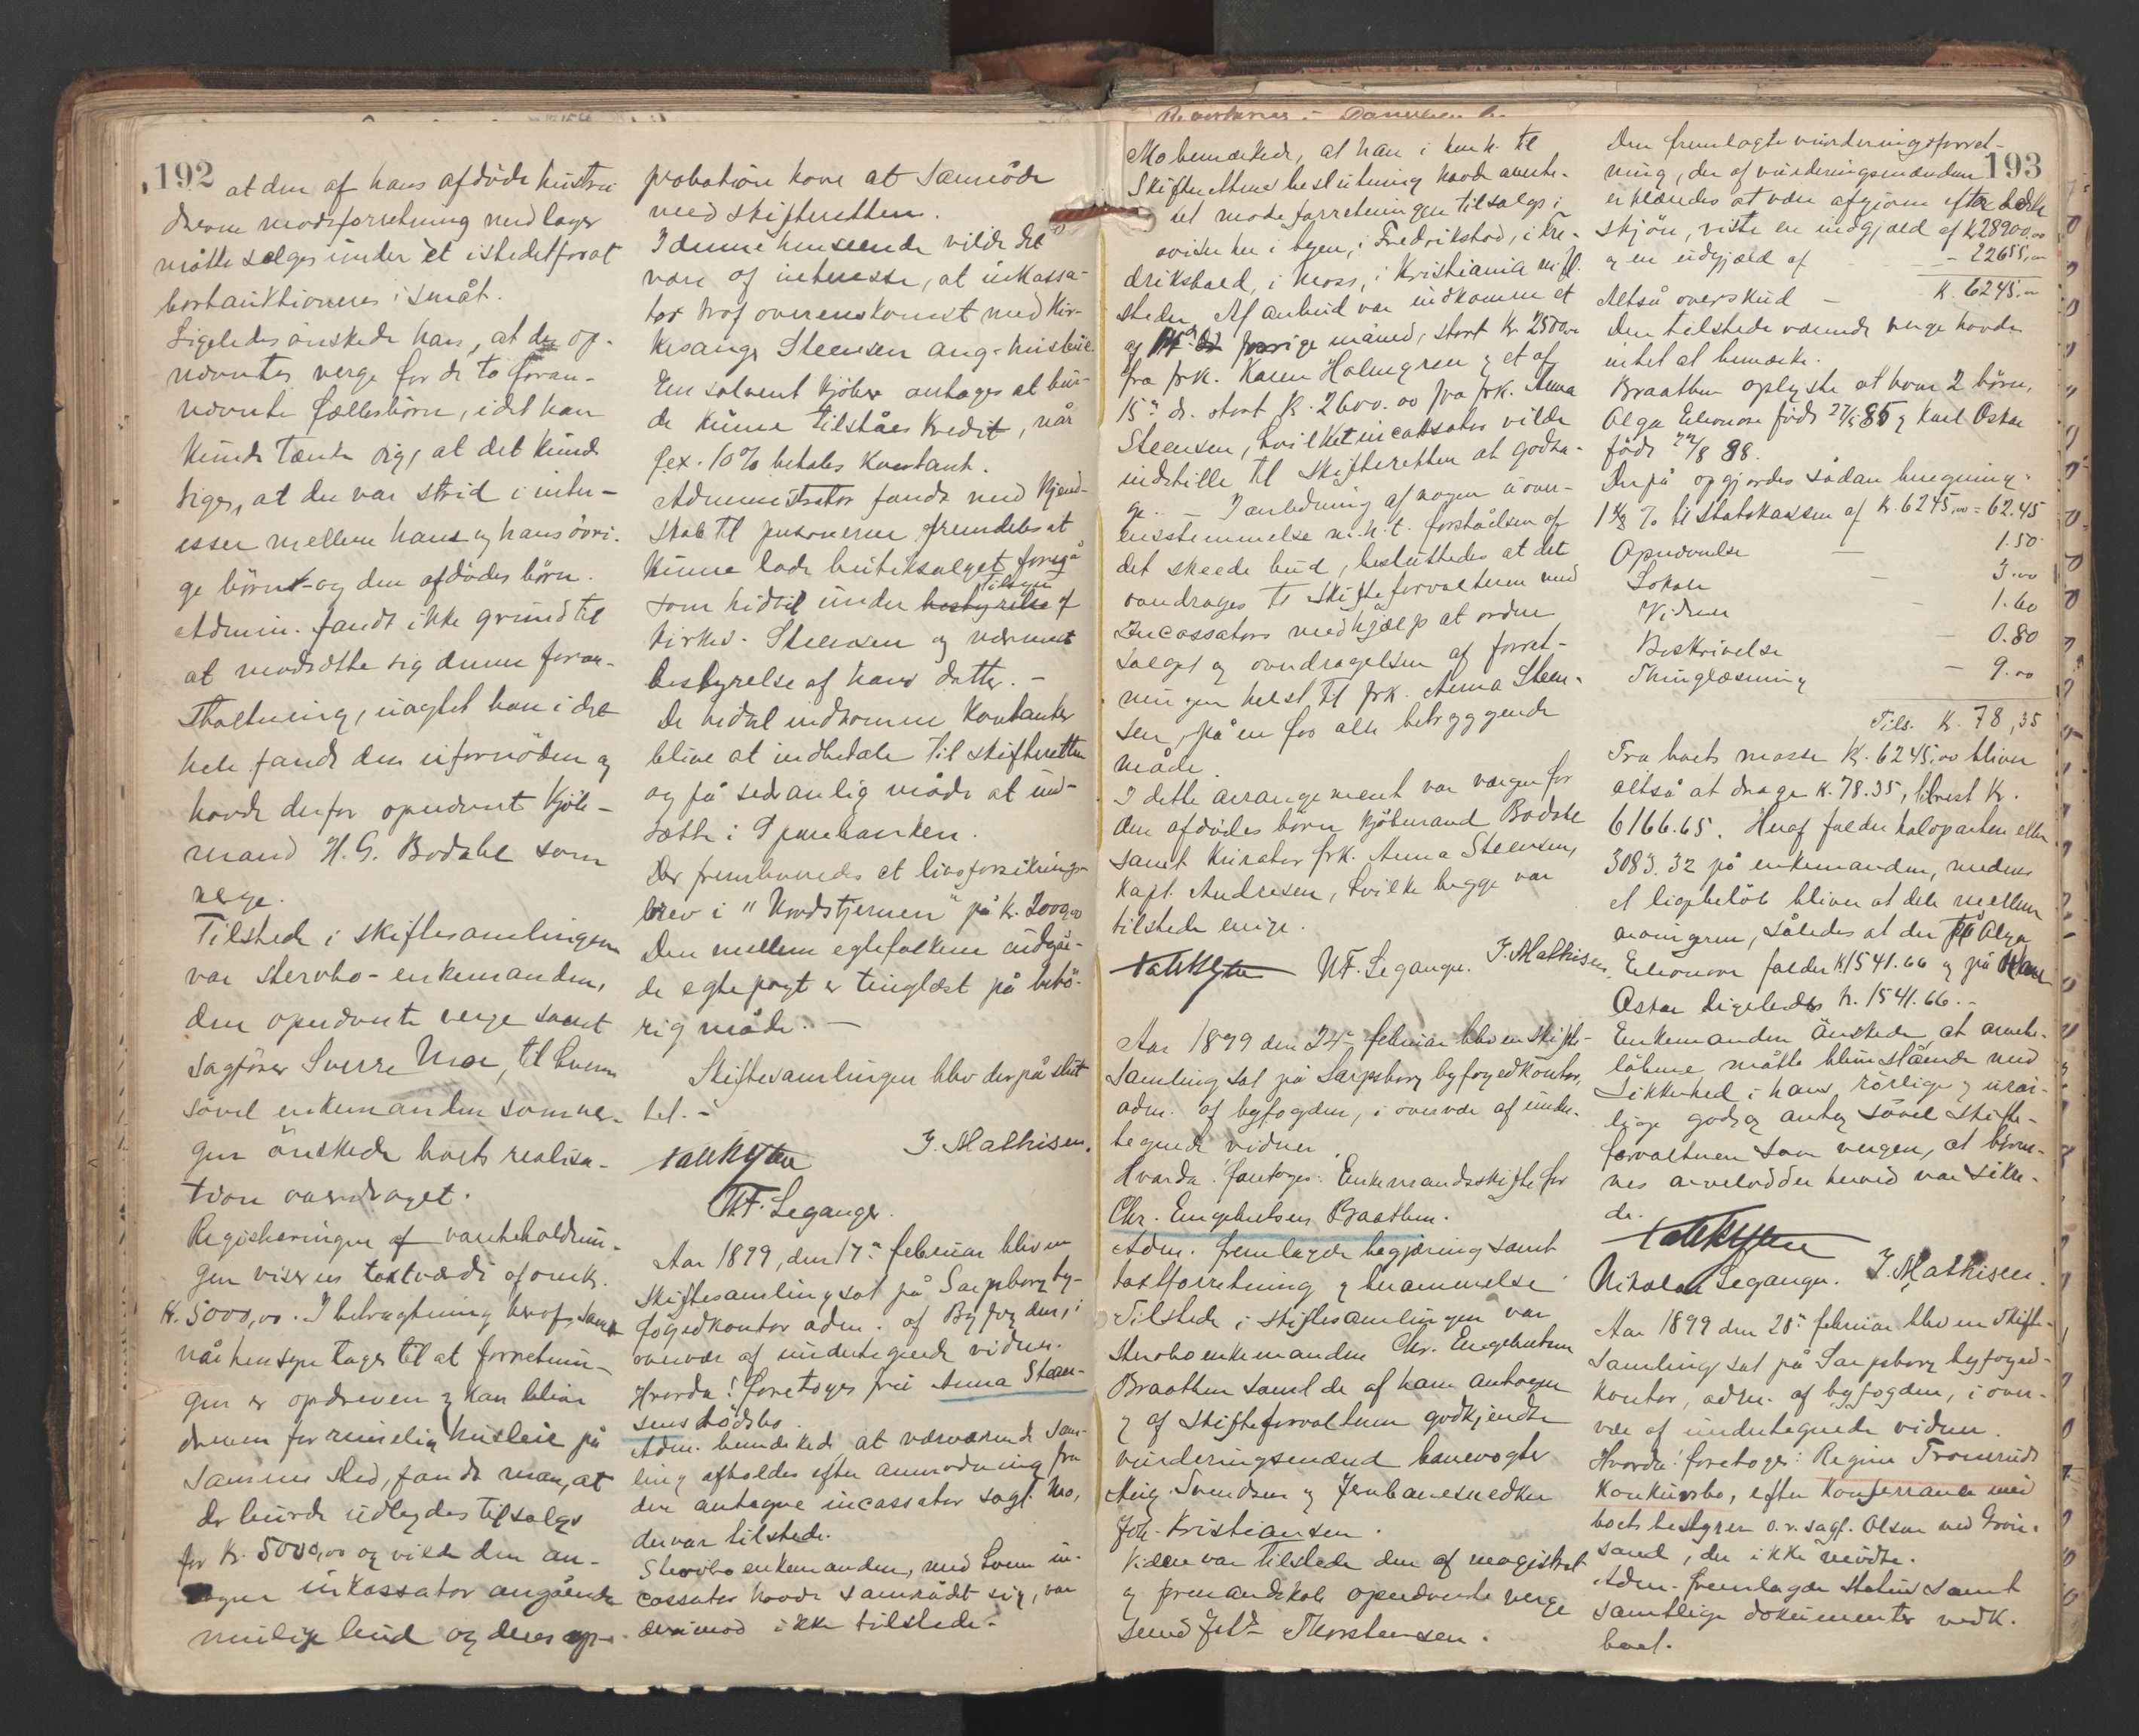 192
at den af hans afdøde hustru
drevne modeforretning med lager
måtte selges under ét istedetfor at
bortauktioneres i småt.
Ligeledes ønskede han, at der op-
nævntes verge for de to foran-
nævnte fællesbørn, idet han
kunde tænke sig, at det kunde
siges, at der var strid i inter-
esser mellem hans og hans øvri-
ge børn og den afdødes børn.
Admin. fandt ikke grund til
at modsætte sig denne foran-
staltning, uagtet han i det
hele fandt den ufornøden og
havde derfor opnævnt kjøb-
mand H. G. Bodahl som
verge.
Tilstede i skiftesamlingen
var stervbo-enkemanden,
den opnævnte verge samt
sagfører Sverre Moe, til hvem
såvel enkemanden som ver-
gen ønskede boets realisa-
tion overdraget.
Registreringen af vareheholdnin-
gen viser en takstværdi af omk.
Kr. 5000,00. I betragtning heraf, samt
når hensyn tages til at forretnin-
gen er opdreven og kan blive
dreven for rimelig husleie på
samme sted, fandt man, at
de burde udbydes tilsalgs
for Kr. 5000,00 og vilde den an-
tagne inkassator angående
mulige bud og deres ap-
probation have at samråde
med skifteretten.
I denne henseende vilde det
være af interesse, at inkassa-
tor traf overenskomst med Kir-
kesanger Steensen ang. husleie.
En solvent kjøber antages at bur-
de kunne tilståes kredit, når
f.ex. 10% betales kontant.
Administrator fandt med kjend-
skab til personerne fremdeles at
kunne lade butiksalget foregå
Tilsyn
som hidtil under bestyrelse af
kirkes. Steensen og nærmest
bestyrelse af hans datter. –
De hidtil indkomne kontanter
blive at indbetale til skifteretten
og på sedvanlig måde at ind-
sætte i Sparebanken.
Der fremhævedes et livsforsikrings-
brev i "Nordstjernen" på Kr. 2000,00
Den mellem egtefolkene indgåe-
de egtepagt er tinglæst på behø-
rig måde. –
Skiftesamlingen blev derpå slut
tet. –
J. Mathisen.
N.F. Leganger.
Aar 1899, den 17de februar blev en
skiftesamling sat på Sarpsborg by-
fogedkontor adm. af Byfogden, i
overvær af undertegnede vidner.
Hvorda! foretoges frū Anna Steen-
sens dødsbo.
Adm. bemærkede at nærværende sam-
ling afholdes efter anmodning fra
den antagne incassator sagf. Mo,
der var tilstede.
Stervboenkemanden, med hvem in-
cassator havde samrådt sig, var
derimod ikke tilstede.
193
Mo bemærkede, at han i henh. til
Skifterettens beslutning havde averte-
ret modeforretningen tilsalgs i
aviser her i byen, i Fredrikstad, i Fre-
drikshald, i Moss, i Kristiania m. fl.
steder. Af anbud var indkommet et
af 14de forrige måned, stort Kr. 2500,00
fra frk. Karen Holmgren og et af
15de ds. stort Kr. 2600.00 fra frk. Anna
Steensen, hvilket incassator vilde
indstille til skifteretten at godta-
ge. – I anledning af nogen uover-
ensstemmelse m.h.t. forståelsen af
det skeede bud, besluttedes at det
overdrages til skifteforvalteren med
Incassators medhjælp at ordne
salget og overdragelsen af forret-
ningen helst til frk. Anna Steen-
sen, på en for alle betryggende
måde.
I dette arrangement var vergen for
den afdødes børn kjøbmand Bodahl
samt kurator for frk. Anna Steensen,
Kapt. Andresen, hvilke begge var
tilstede enige.
N.F. Leganger. J. Mathisen.
Aar 1899 den 24de februar blev en skifte-
samling sat på Sarpsborg byfogedkontor,
adm. af byfogden, i overvær af under-
tegnede vidner.
Hvorda! foretoges: Enkemandsskifte for
Chr. Engebretsen Braathen.
Adm. fremlagde begjæring samt
takstforretning og berammelse
Tilstede i skiftesamlingen var
stervboenkemanden Chr. Engebretsen
Braathen samt de af ham antagne
og af skifteforvalteren godkjendte
vurderingsmænd banevogter
Aug. Svendsen og Jernbanesnedker
Joh. Kristiansen.
Videre var tilstede den af magistrat
og formandskab opnævnte verge
Thorstensen.
Den fremlagte vurderingsforret-
ning, der af vurderingsmændene
erklæredes at være afgiven efter bedste
skjøn, viste en indgjæld af Kr. 28900.00
og en udgjæld af – 22655,00
Altså overskud – K. 6245.00
Den tilstedeværende verge havde
intet at bemærke.
Braathen oplyste at have 2 børn,
Olga Eleonore født 27/5 85 og Karl Oskar
født 22/8 88.
Derpå opgjordes sådan beregning:
1 % til Statskassen af Kr. 6245,00 = 62.45
Opnævnelse – 1.50
Lokale – 3.00
Vidner – 1.60
Beskrivelse – 0.80
Thinglæsning – 9.00
Tils. K. 78,35
Fra boets masse Kr. 6245,00 bliver
altså at drage K. 78.35, tilrest Kr.
6166.65. Heraf falder halvparten eller
3083.32 på enkemanden, medens
et ligebeløb bliver at dele mellem
arvingerne, således at der på Olga
Eleonore falder K. 1541.66 og på Karl
Oskar ligeledes Kr. 1541.66. –
Enkemanden ønskede at arvebe-
løbene måtte blive stående med
sikkerhed i hans rørlige og urør-
lige gods og antog såvel skifte-
forvalteren som vergen, at børne-
nes arvelodder herved var sikre-
de.
Nikolai Leganger. J. Mathisen.
Aar 1899 den 28de februar blev en skifte-
samling sat på Sarpsborg byfoged-
kontor, adm. af byfogden, i over-
vær af undertegnede vidner.
Hvorda! foretoges: Regine Tronruds
Konkursbo, efter konferrance med
boets bestyrer o.r. sagf. Olsen ved Grøn-
sand, der ikke mødte.
Adm. fremlagde status samt
samtlige dokumenter vedk.
boet.